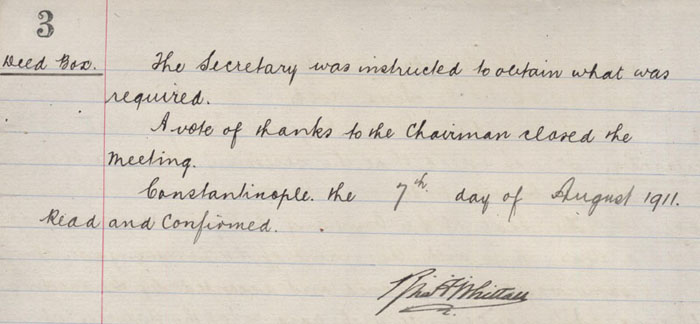 3
Deed Box. The Secretary was instructed to obtain what was
required.
A vote of thanks to the Chairman closed the
meeting.
Constantinople. the 7th. day of August 1911.
Read and Confirmed.
Whittall